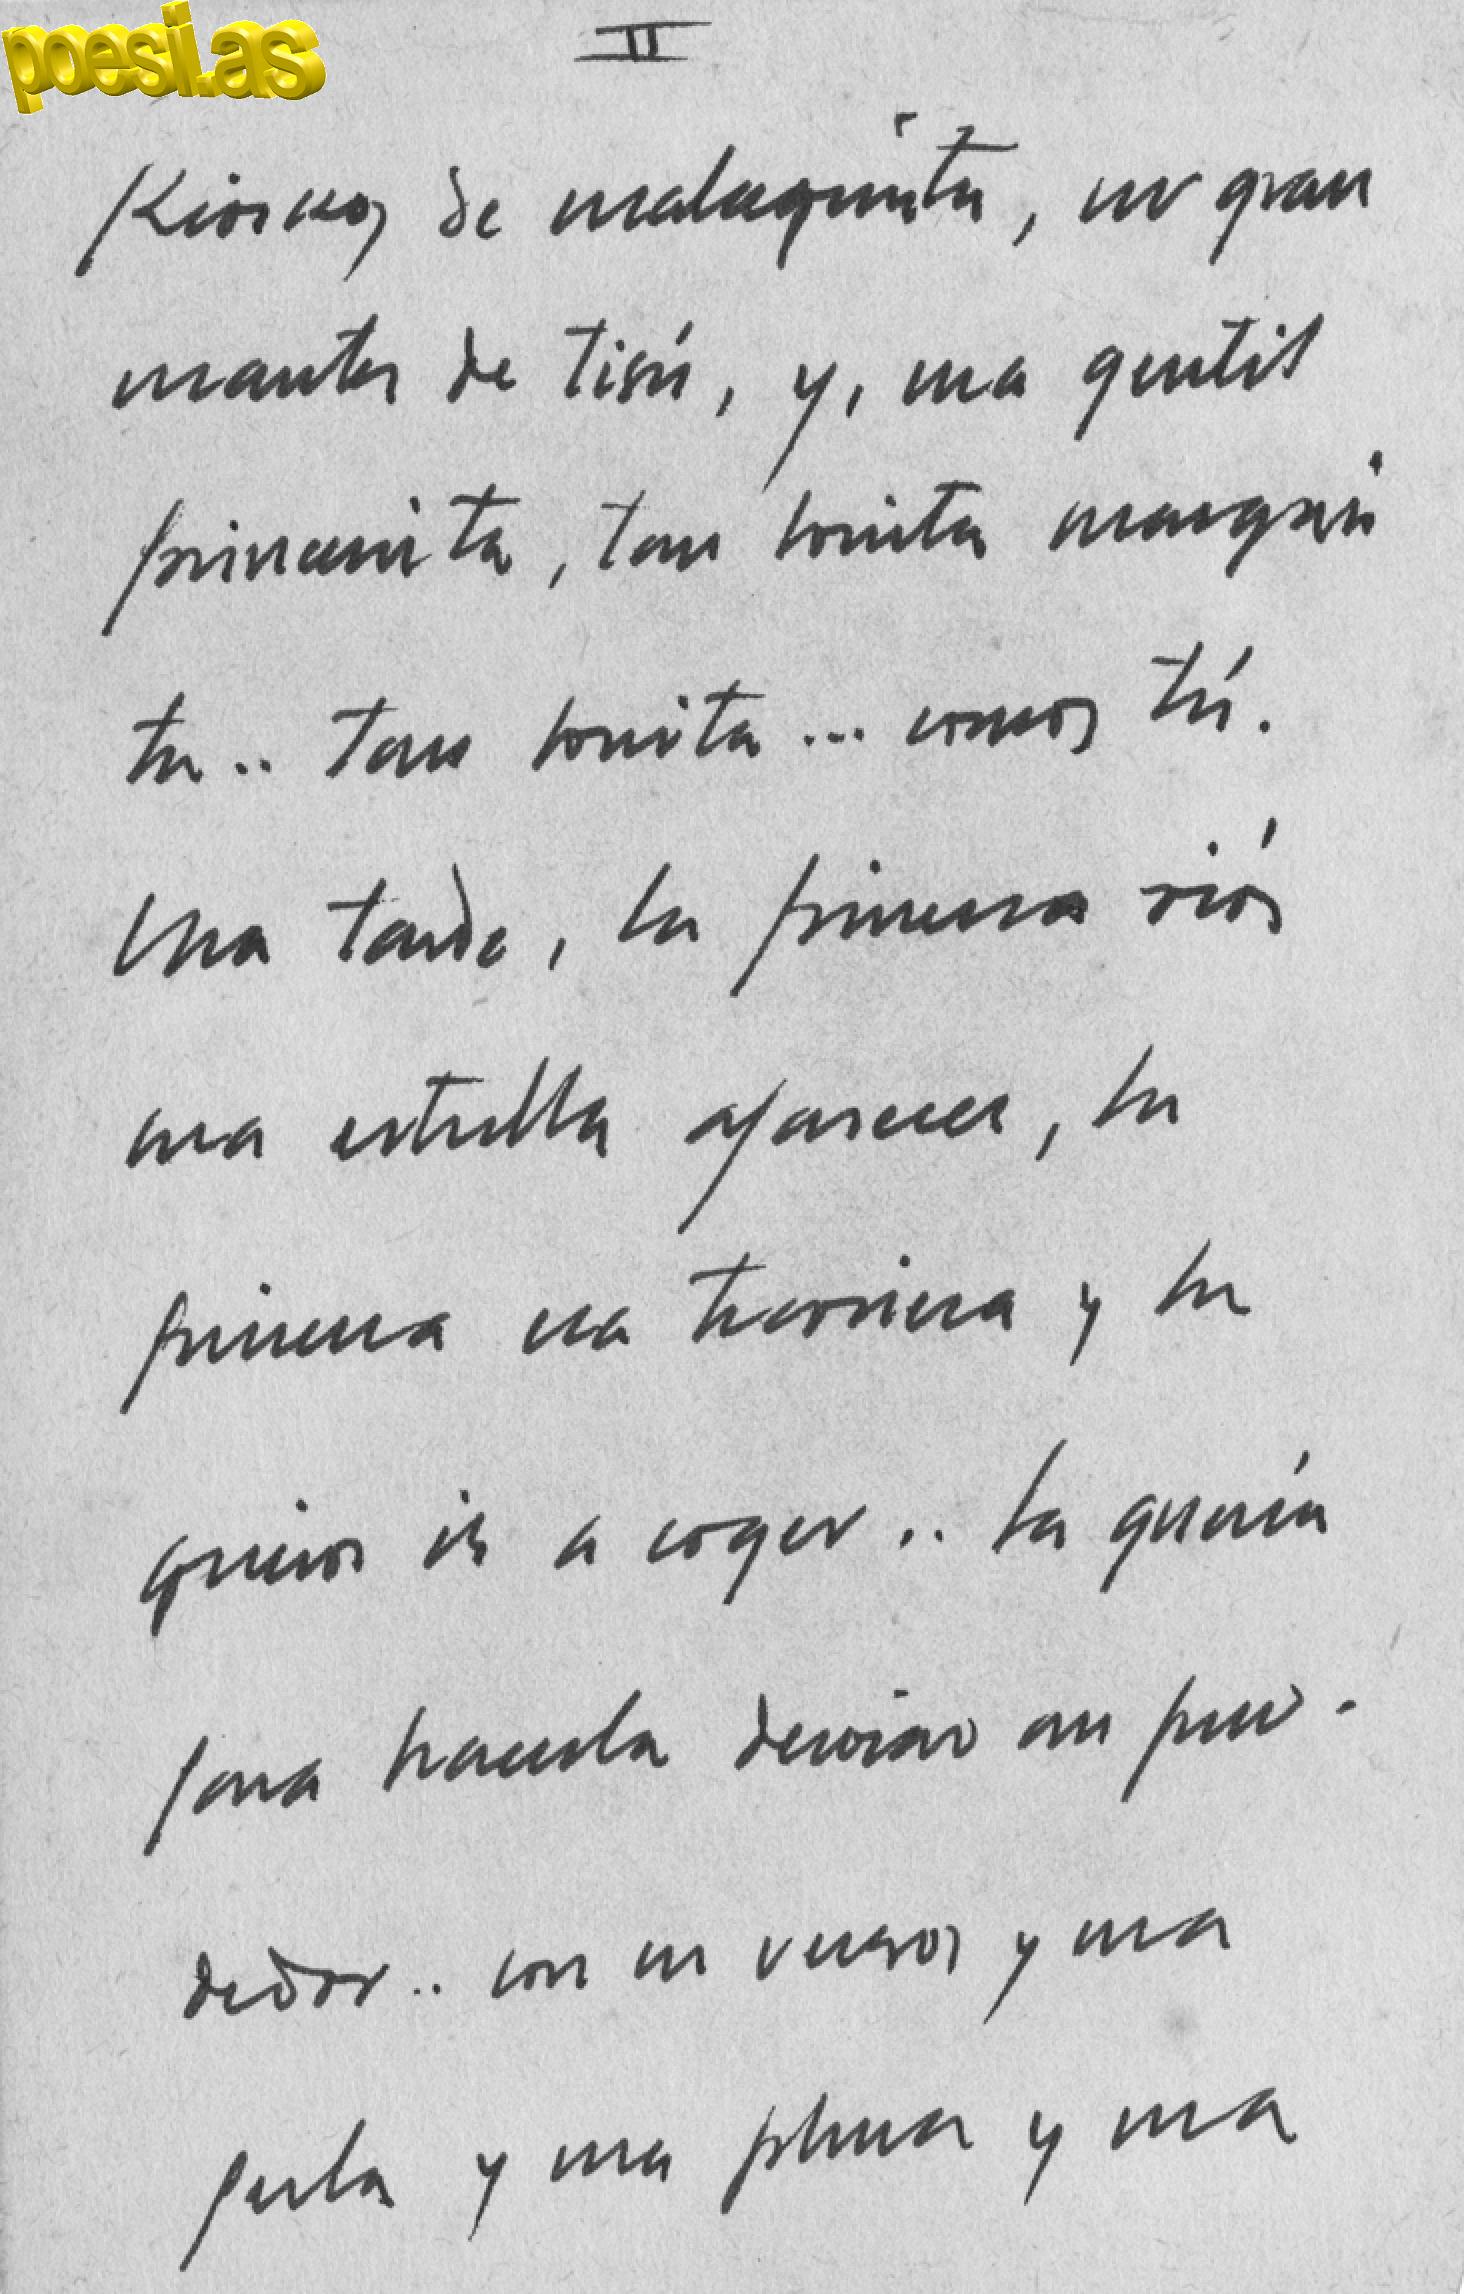 poesi.as
II
Kiosko de malaquita, un gran
manto de tisú, y, una gentil
princesita, tan bonita margari
ta.. tan bonita... como tú.
Una tarde, la princesa vió
una estrella aparecer, la
princesa era traviesa y la
quiso ir a coger.. la quería
para hacerla decorar un pren-
dedor.. con un verso y una
perla y una pluma y una